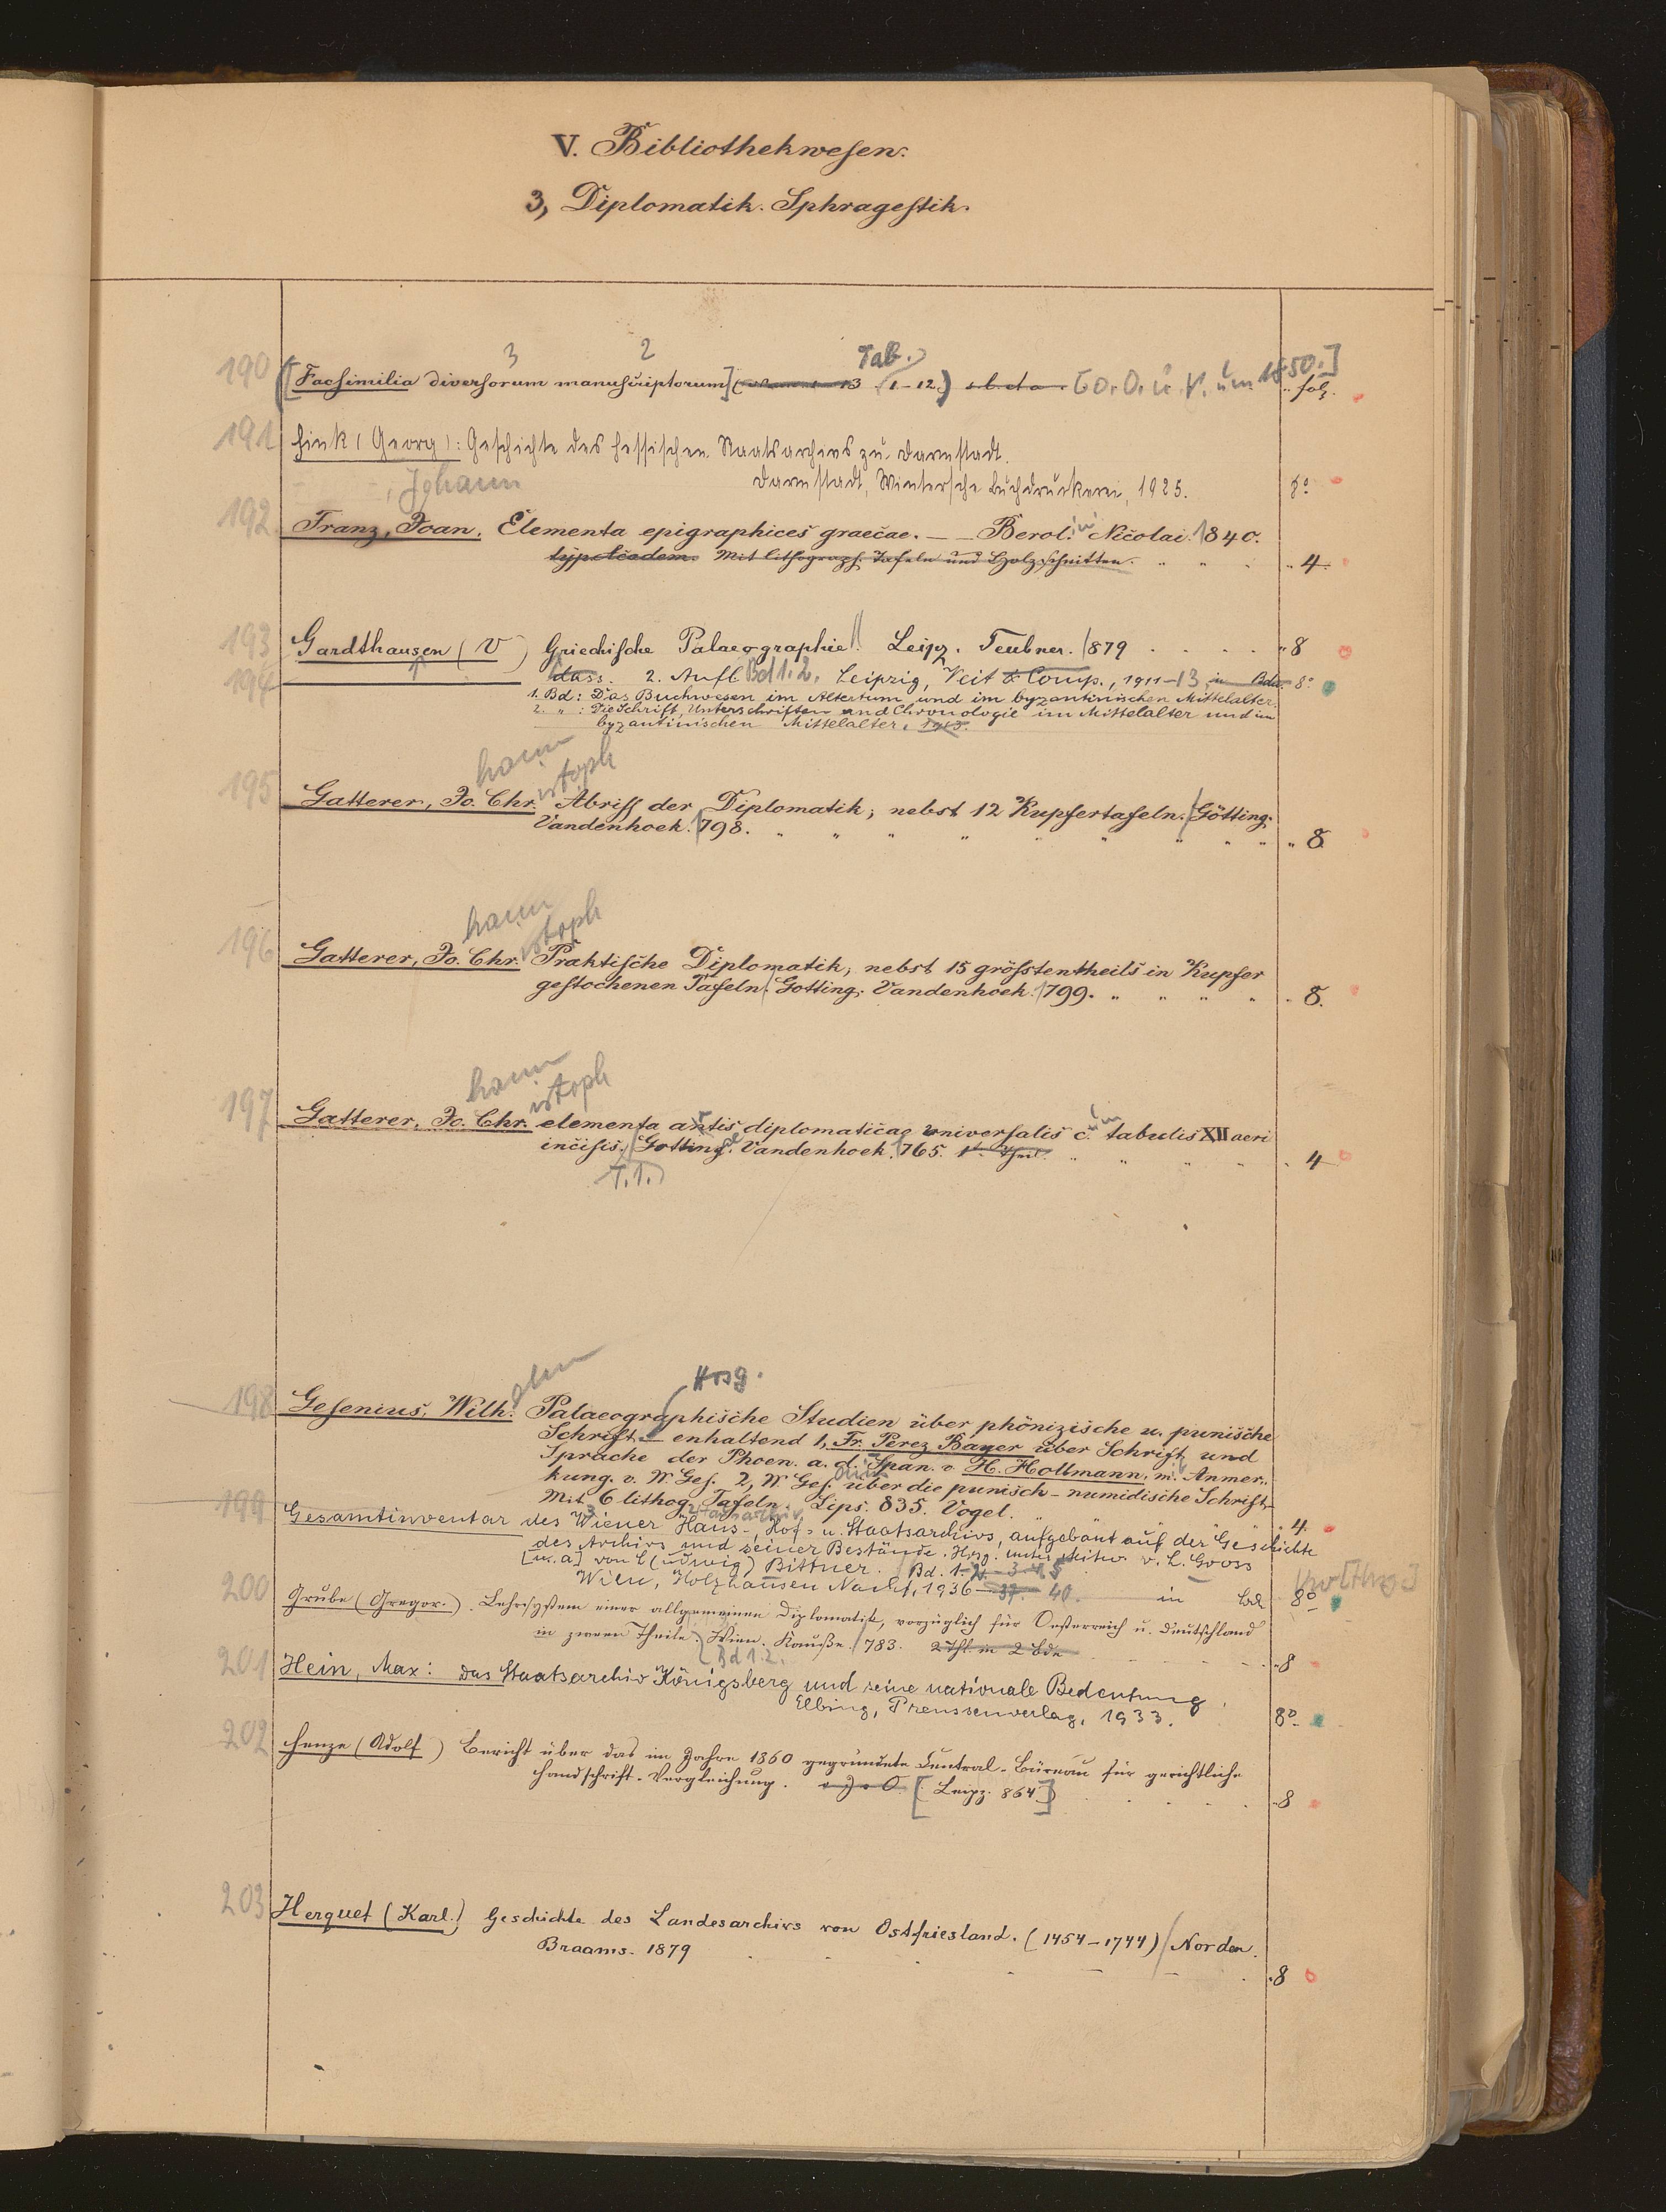 V. Bibliothekwesen.
3, Diplomatik. Sphragestik.
3 2 Tab.
190 [Facsimilia diversorum manuscriptorum] 13 (1-12.) [o. O. u. V. um 1850.] fol.
191 Fink (Georg): Geschichte des hessischen Staatsarchivs zu Darmstadt.
Darmstadt, Wintersche Buchdruckerei, 1925. 8°
Johann
192 Franz, Joan. Elementa epigraphices graecae. — Berol. Nicolai. 1840.
typ. Academ. Mit lithograph. Tafeln und Holzschnitten. 4.
193 Gardthausen (V) Griechische Palaeographie. Leipz. Teubner. 1879 8
194 dass. 2. Aufl. Bd 1. 2. Leipzig, Veit & Comp., 1911-13 in Bdn 8°
1. Bd: Das Buchwesen im Altertum und im byzantinischen Mittelalter.
2. " : Die Schrift, Unterschriften und Chronologie im Mittelalter und im
byzantinischen Mittelalter. 1913.
hann istoph
195 Gatterer, Jo. Chr. Abriss der Diplomatik, nebst 12 Kupfertafeln. Götting.
Vandenhoek. 1798. 8.
hann istoph
196 Gatterer, Jo. Chr. Praktische Diplomatik, nebst 15 grösstentheils in Kupfer
gestochenen Tafeln. Gotting. Vandenhoek. 1799. 8.
hann istoph
197 Gatterer, Jo. Chr. elementa artis diplomaticae universalis c. um tabulis XII aeri
incisis. Gotting. Vandenhoek. 1765. 1r Theil. 4
T. 1.
elm Hrsg.
198 Gesenius, Wilh. Palaeographische Studien über phönizische u. punische
Schrift. — enhaltend 1, Fr. Perez Bayer über Schrift und
Sprache der Phoen. a. d. Span. v. H. Hollmann, m. Anmer-
kung. v. W. Ges. 2, W. Ges. über die punisch-numidische Schrift.
Mit 6 lithog. Tafeln. Lips. 835. Vogel. 4.
199 Gesamtinventar des Wiener Haus-, Hof- u. Staatsarchivs, aufgebaut auf der Geschichte
des Archivs und seiner Bestände. Hrsg. unter Mitw. v. L. Gross
[u. a.] von L(udwig) Bittner. Bd. 1. 2. 3. 4. 5
Wien, Holzhausen Nachf., 1936-37. 40. in Bd 8°
200 Gruber (Gregor.) Lehrsystem einer allgemeinen Diplomatik, vorzüglich für Oesterreich u. Deutschland
in zween Theile. Wien. 1783. 2 Thl. in 2 Bdn 8
Bd 1. 2.
201 Hein, Max: Das Staatsarchiv Königsberg und seine nationale Bedeutung.
Elbing, Preussenverlag, 1933. 8°
202 Henze (Adolf) Bericht über das im Jahre 1860 gegründete Central-Büreau für gerichtliche
Handschrift-Vergleichung. [Leipz. 864] 8
203 Herquet (Karl.) Geschichte des Landesarchivs von Ostfriesland. (1454-1744) Norden.
Braams. 1879 8